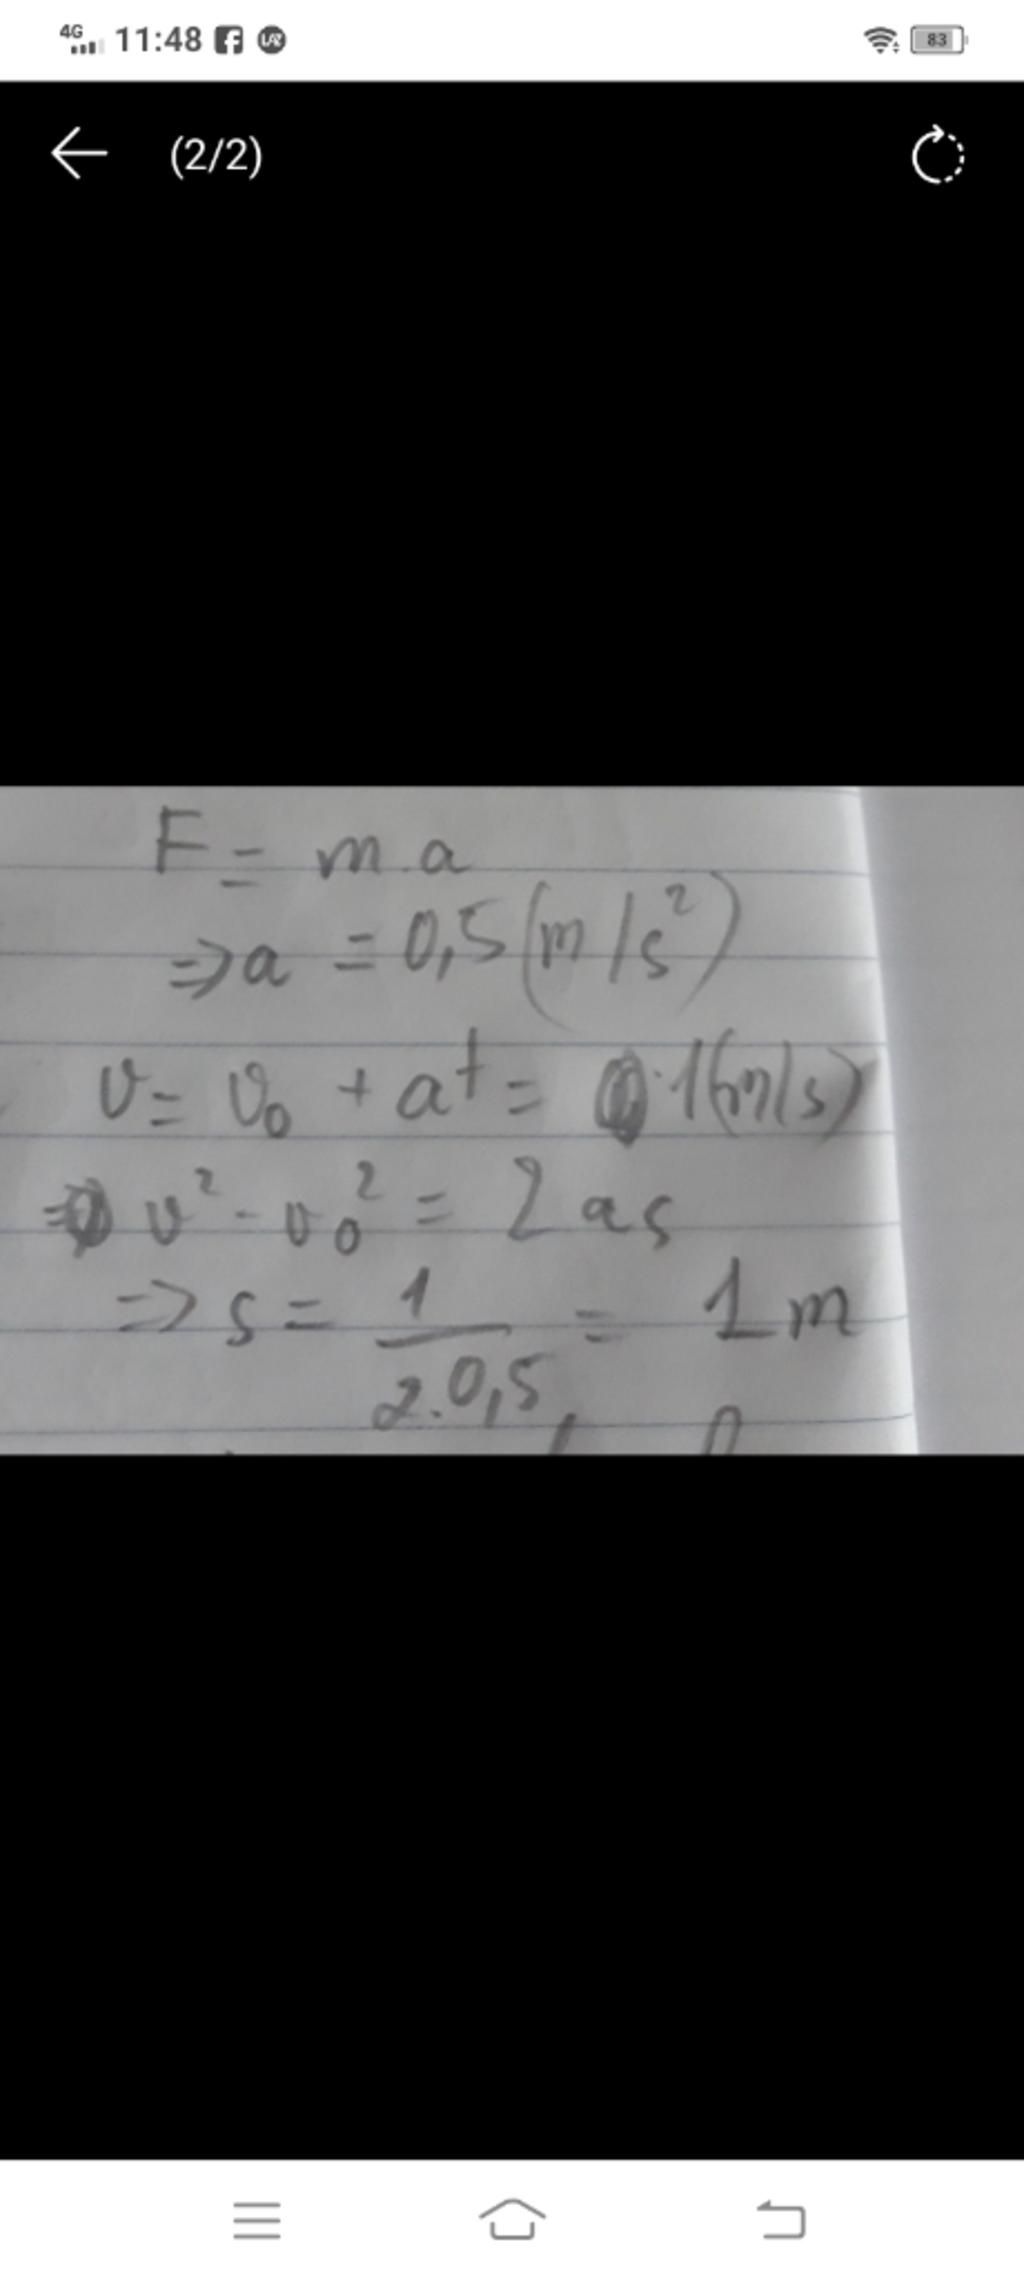 4G 11:48 83
(2/2)
F = m.a
=> a = 0,5 (m/s²)
v = v₀ + at = 1 (m/s)
v² - v₀² = 2as
=> s = 1/2.0,5 = 1m